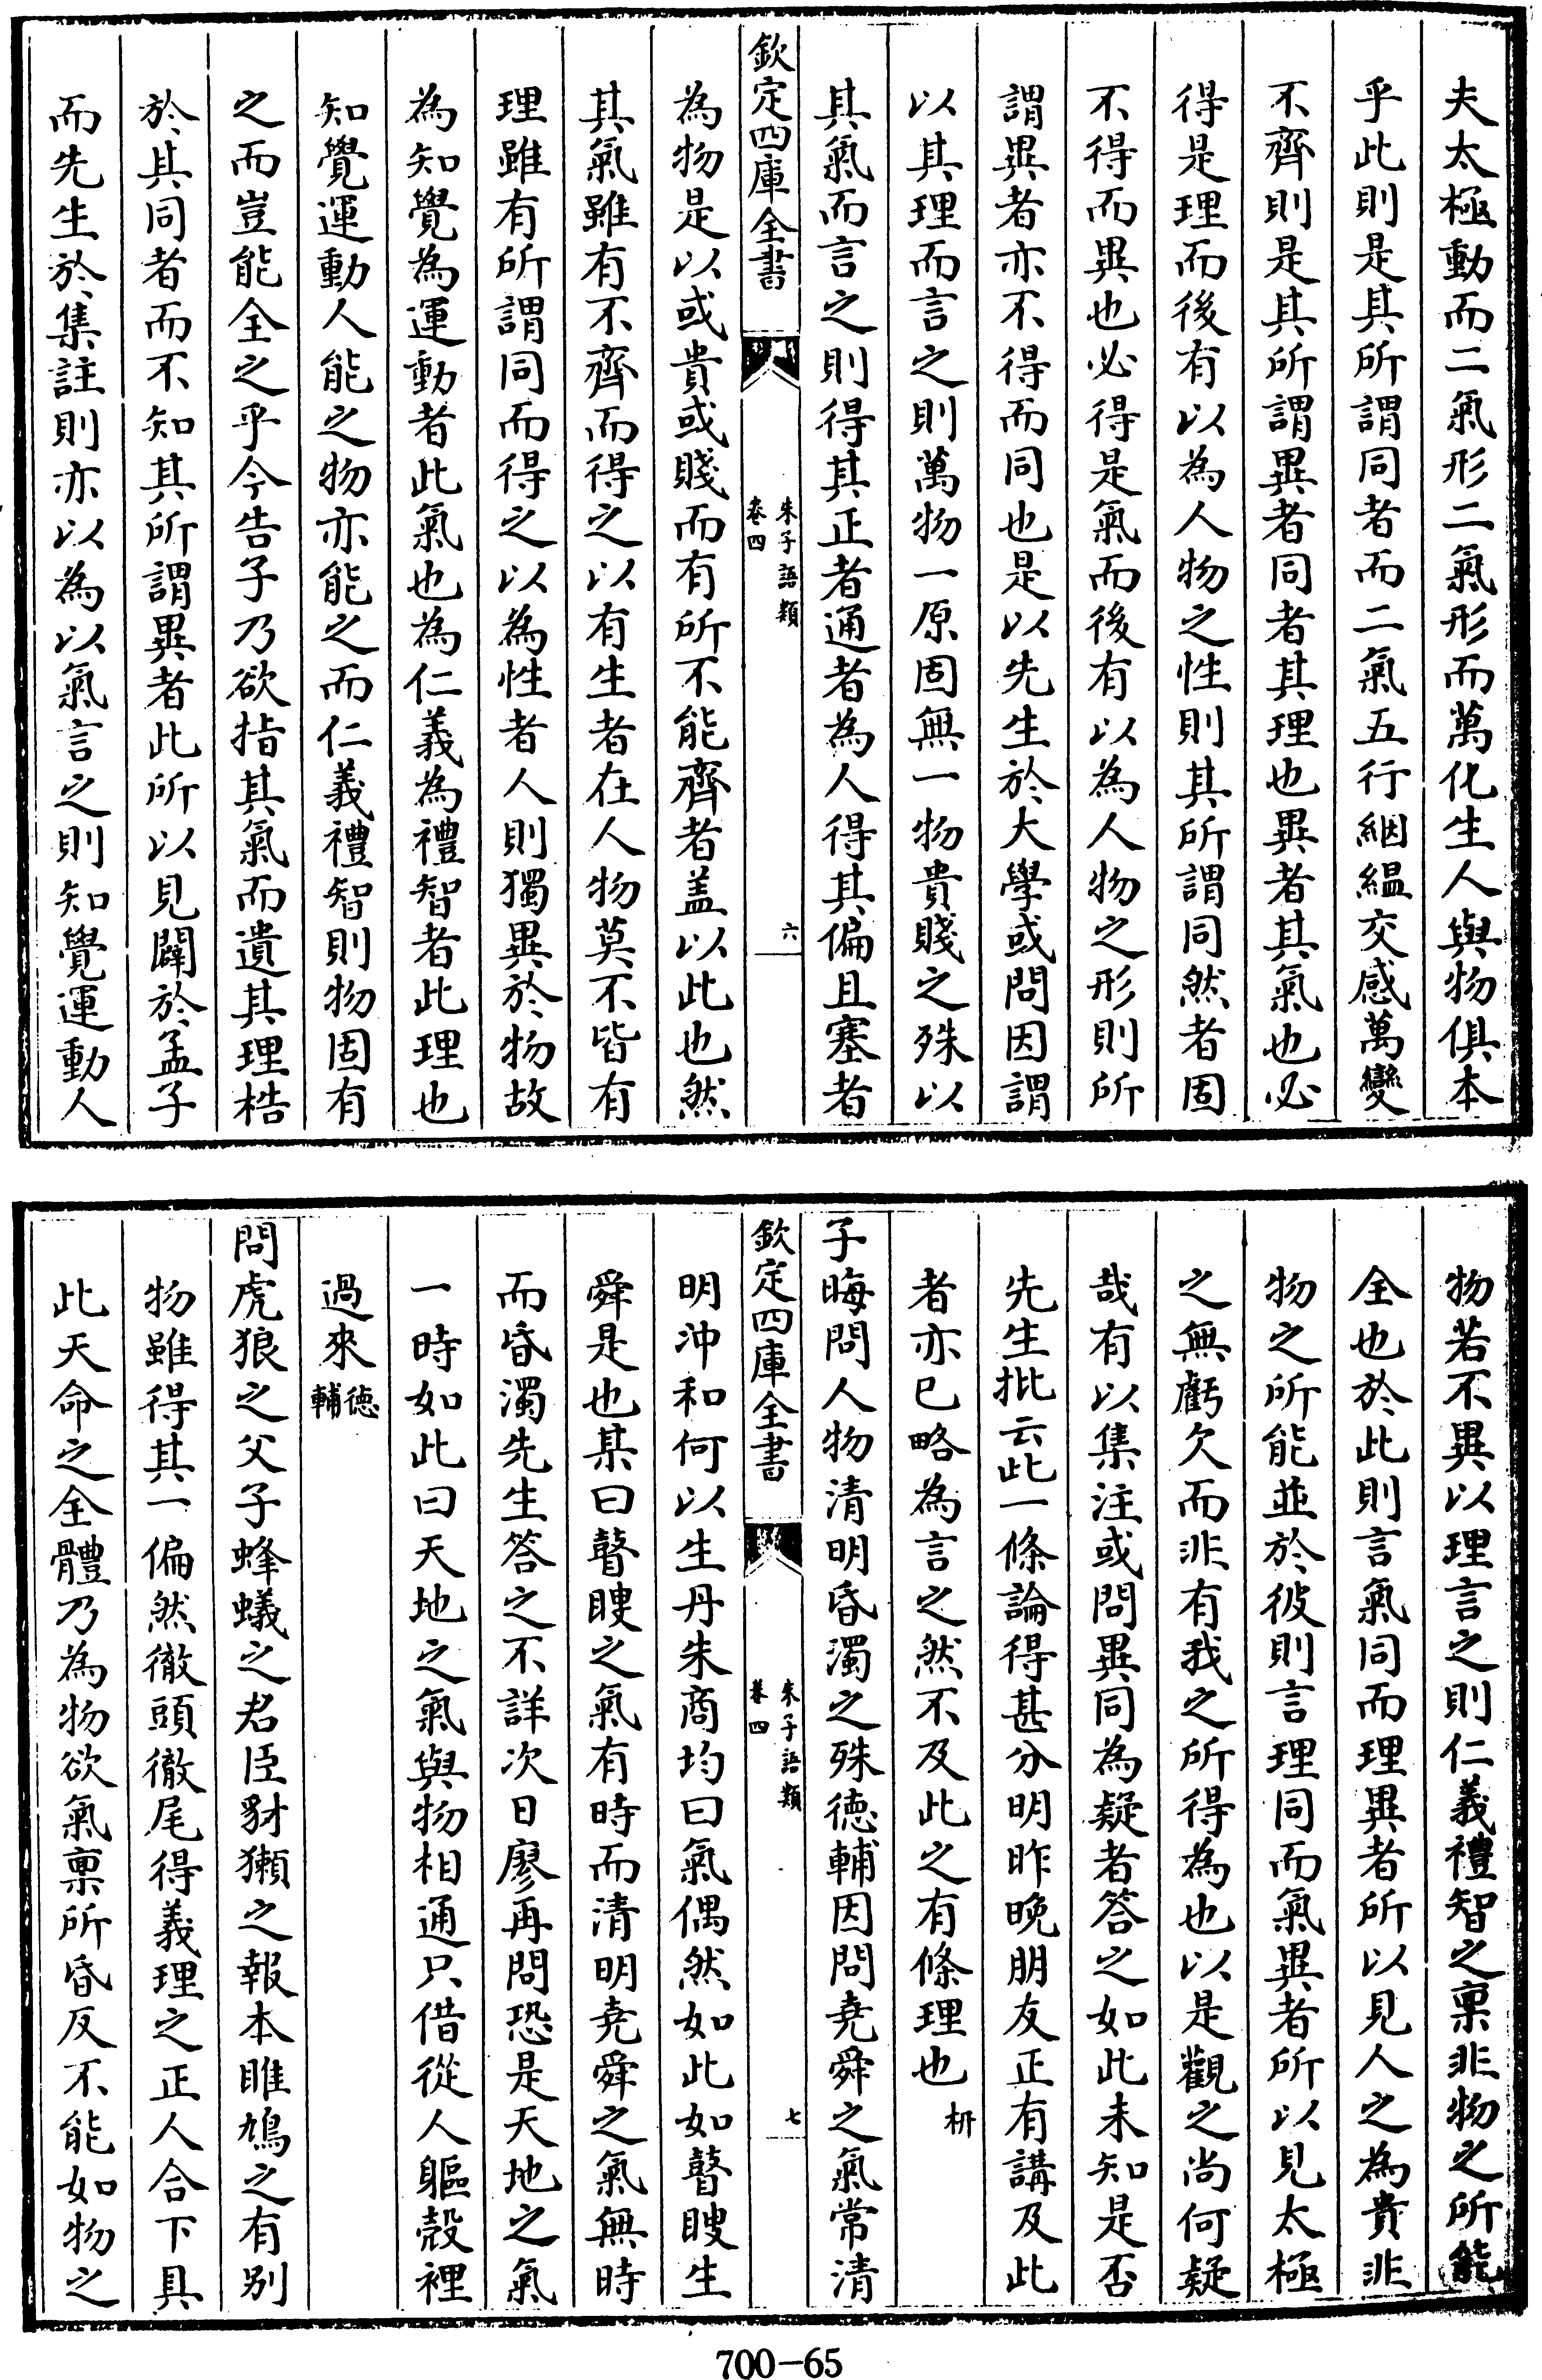 夫太極動而二氣形二氣形而萬化生人與物俱本
乎此則是其所謂同者而二氣五行絪縕交感萬變
不齊則是其所謂異者同者其理也異者其氣也必
得是理而後有以為人物之性則其所謂同然者固
不得而異也必得是氣而後有以為人物之形則所
謂異者亦不得而同也是以先生於大學或問因謂
以其理而言之則萬物一原固無一物貴賤之殊以
其氣而言之則得其正者通者為人得其偏且塞者
欽定四庫全書
朱子語類
卷四
六
為物是以或貴或賤而有所不能齊者盖以此也然
其氣雖有不齊而得之以有生者在人物莫不皆有
理雖有所謂同而得之以為性者人則獨異於物故
為知覺為運動者此氣也為仁義為禮智者此理也
知覺運動人能之物亦能之而仁義禮智則物固有
之而豈能全之乎今告子乃欲指其氣而遺其理梏
於其同者而不知其所謂異者此所以見闢於孟子
而先生於集註則亦以為以氣言之則知覺運動人
物若不異以理言之則仁義禮智之稟非物之所能
全也於此則言氣同而理異者所以見人之為貴非
物之所能並於彼則言理同而氣異者所以見太極
之無虧欠而非有我之所得為也以是觀之尚何疑
哉有以集注或問異同為疑者答之如此未知是否
先生批云此一條論得甚分明昨晚朋友正有講及此
者亦已略為言之然不及此之有條理也 枅
子晦問人物清明昏濁之殊德輔因問堯舜之氣常清
欽定四庫全書
朱子語類
卷四
七
明沖和何以生丹朱商均曰氣偶然如此如瞽瞍生
舜是也某曰瞽瞍之氣有時而清明堯舜之氣無時
而昏濁先生答之不詳次日廖再問恐是天地之氣
一時如此曰天地之氣與物相通只借從人軀殼裡
過來 德輔
問虎狼之父子蜂蟻之君臣豺獺之報本雎鳩之有别
物雖得其一偏然徹頭徹尾得義理之正人合下具
此天命之全體乃為物欲氣稟所昏反不能如物之
700-65